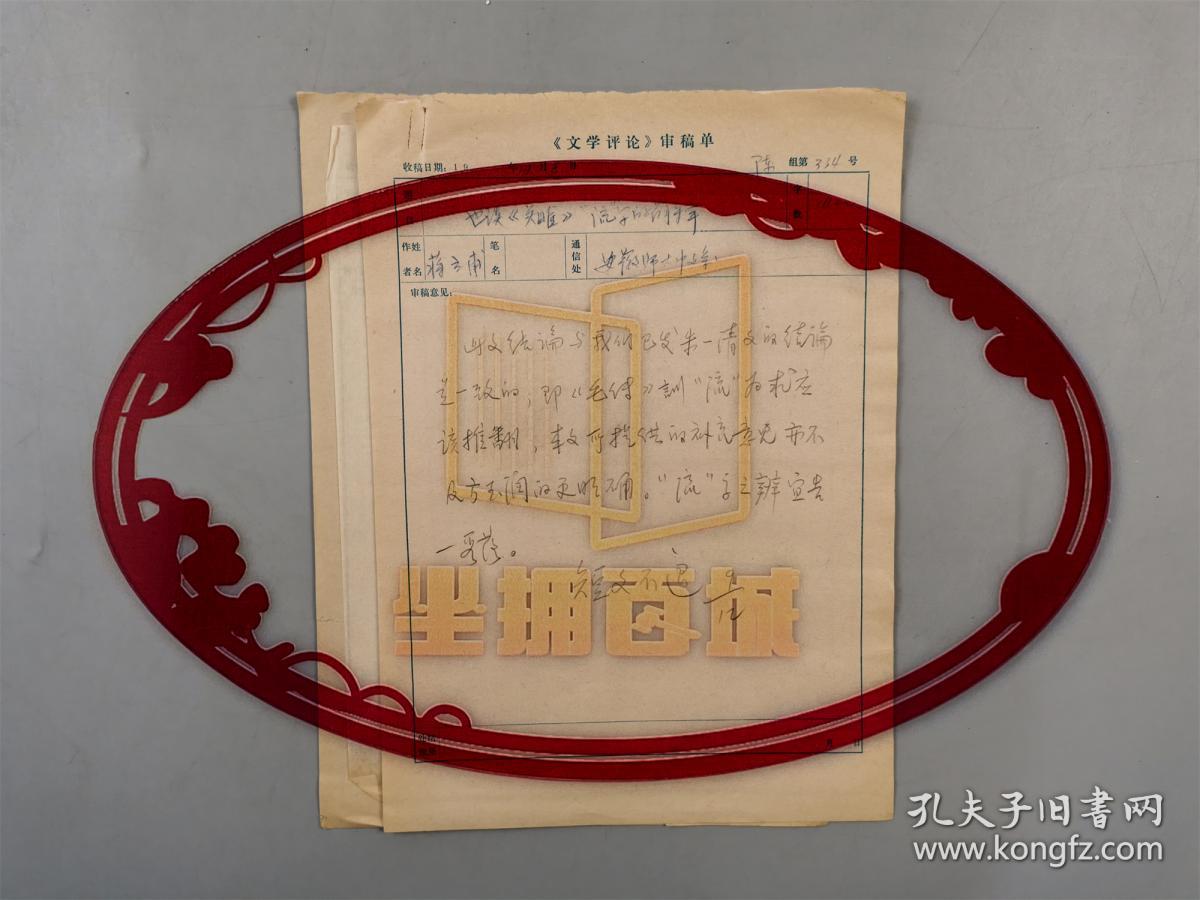 《文学评论》审稿单
收稿日期:19 年 月 8 日 陈 组第 334 号
题目 也谈《关雎》“流”字的 字数
作者姓名 蒋立甫 笔名 通信处 安徽师大中文系
审稿意见:
此文结论与我们已发朱一清文的结论
是一致的,即《毛传》训“流”为求应
该推翻,本文所提供的补充意见亦不
及方玉润的更明确。“流”字之辨宣告
一段落。
短文不退 9/12
坐拥百城
月 日
孔夫子旧书网
www.kongfz.com